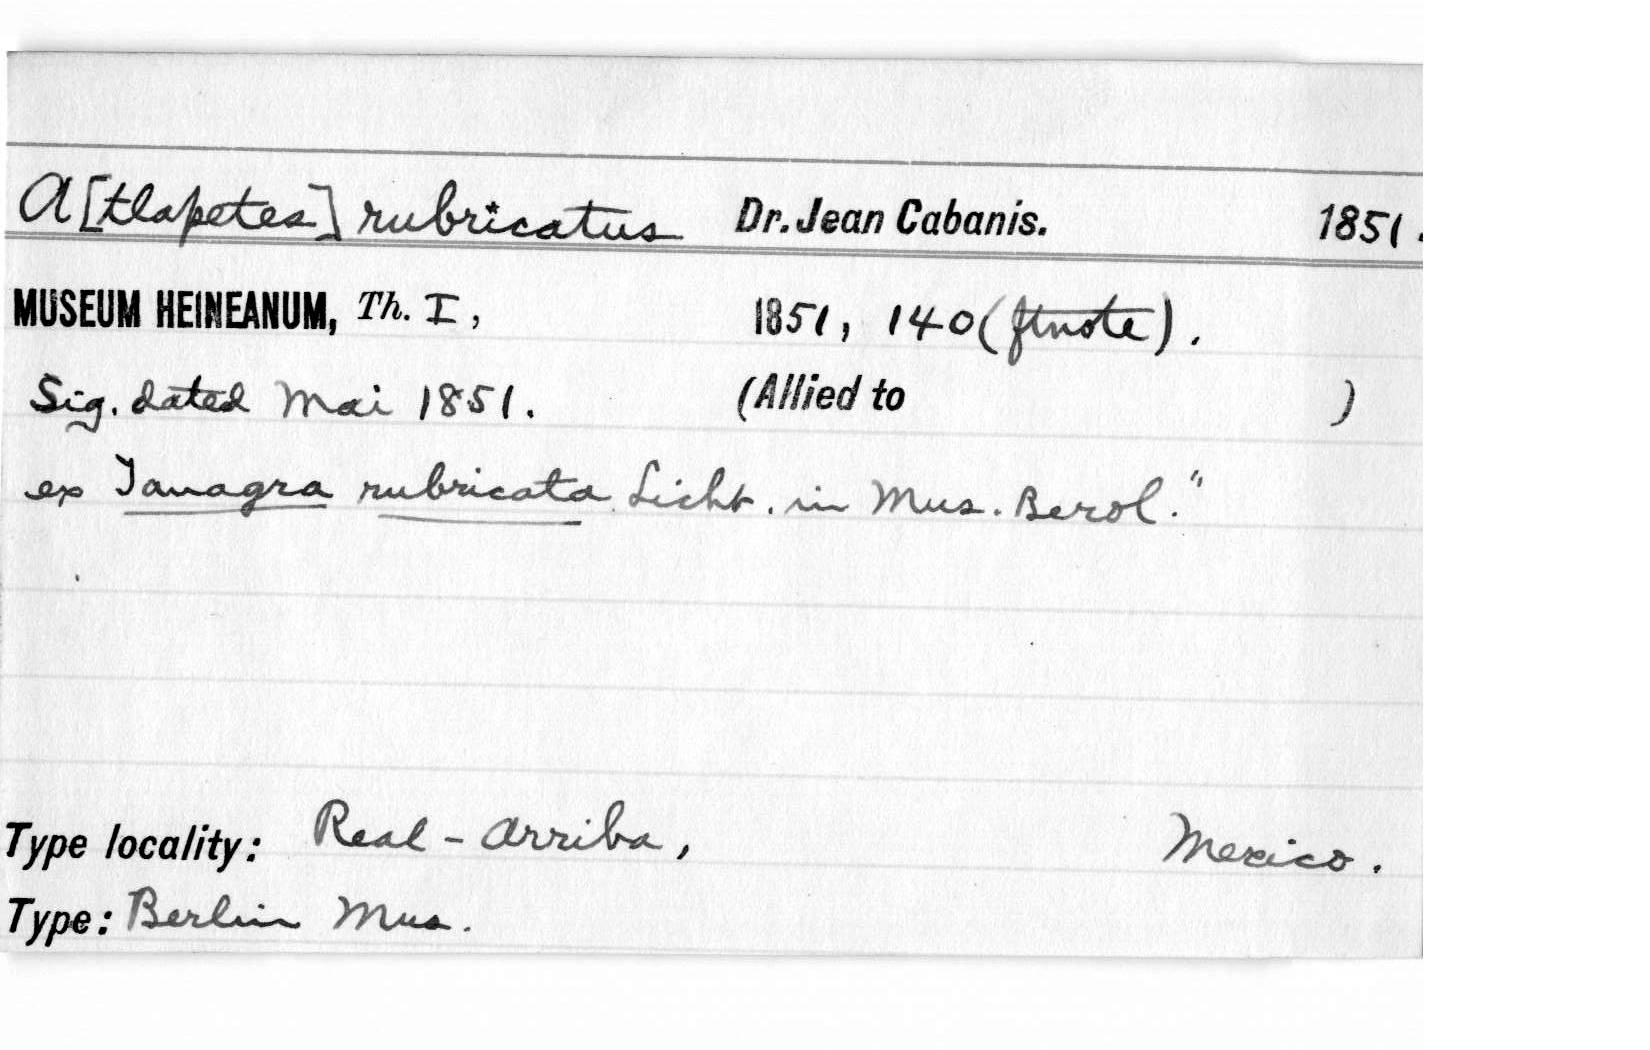 A[tlapetes] rubricatus Dr. Jean Cabanis. 1851.
MUSEUM HEINEANUM, Th. I, 1851, 140 (ftnote).
Sig. dated Mai 1851. (Allied to )
ex Tanagra rubricata Licht. in Mus. Berol."
Type locality: Real-Arriba, Mexico.
Type: Berlin Mus.